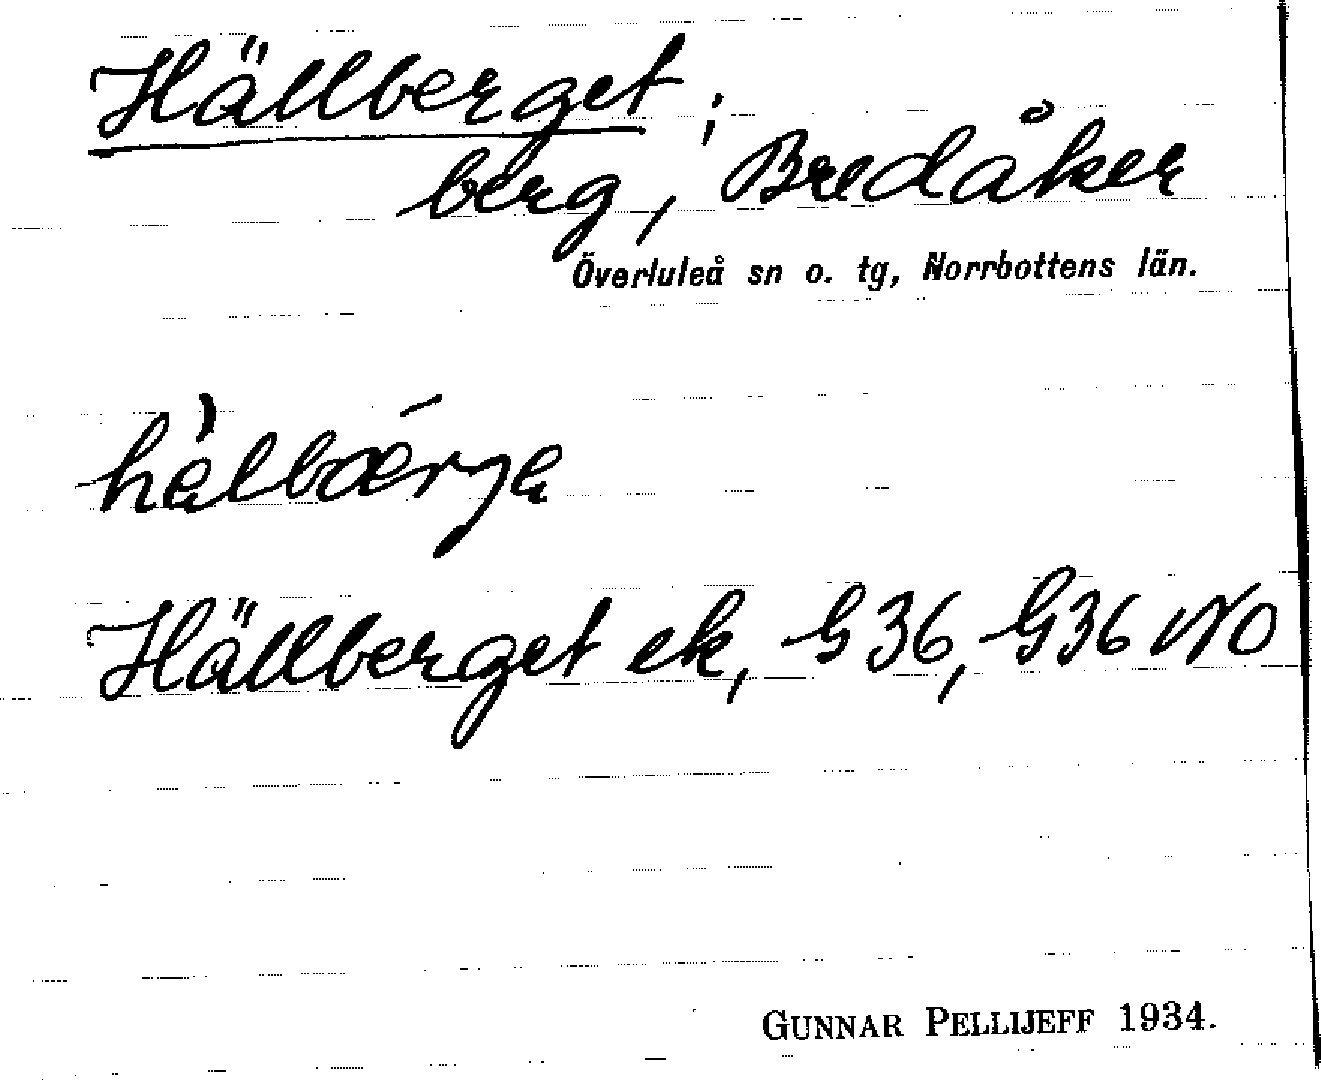 Hällberget;
berg, Bredåker
Överluleå sn o. tg, Norrbottens län.
hàlbǽrje
Hällberget ek, G36, G36 NO
GUNNAR PELLIJEFF 1934.